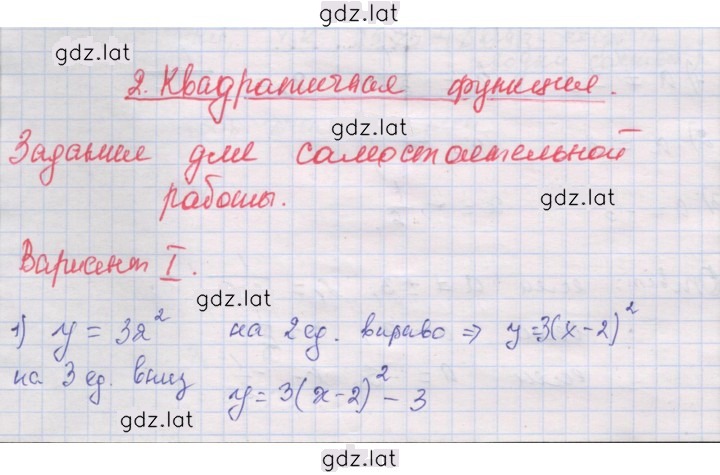 gdz.lat
gdz.lat
2. Квадратичная функция.
gdz.lat
Задания для самостоятельной
gdz.lat
работы.
Вариант I.
gdz.lat
1) y = 3x² на 2 ед. вправо ⇒ y=3(x-2)²
на 3 ед. вниз y = 3(x-2)² - 3
gdz.lat
gdz.lat
gdz.lat